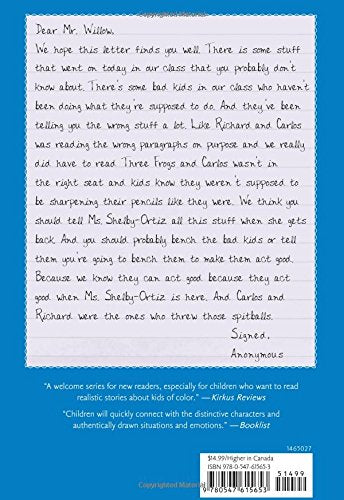 Copyrighted Material
Dear Mr. Willow,
We hope this letter finds you well. There is some stuff
that went on today in our class that you probably don't
know about. There's some bad kids in our class who haven't
been doing what they're supposed to do. And they've been
telling you the wrong stuff a lot. Like Richard and Carlos
was reading the wrong paragraphs on purpose and we really
did have to read Three Frogs and Carlos wasn't in
the right seat and kids know they weren't supposed to
be sharpening their pencils like they were. We think you
should tell Ms. Shelby-Ortiz all this stuff when she gets
back. And you should probably bench the bad kids or tell
them you're going to bench them to make them act good.
Because we know they can act good because they act
good when Ms. Shelby-Ortiz is here. And Carlos and
Richard were the ones who threw those spitballs.
Signed,
Anonymous
"A welcome series for new readers, especially for children who want to read
realistic stories about kids of color." —Kirkus Reviews
"Children will quickly connect with the distinctive characters and
authentically drawn situations and emotions." —Booklist
1465027
$14.99/Higher in Canada
ISBN 978-0-547-61565-3
51499
9 780547 615653
Copyrighted Material